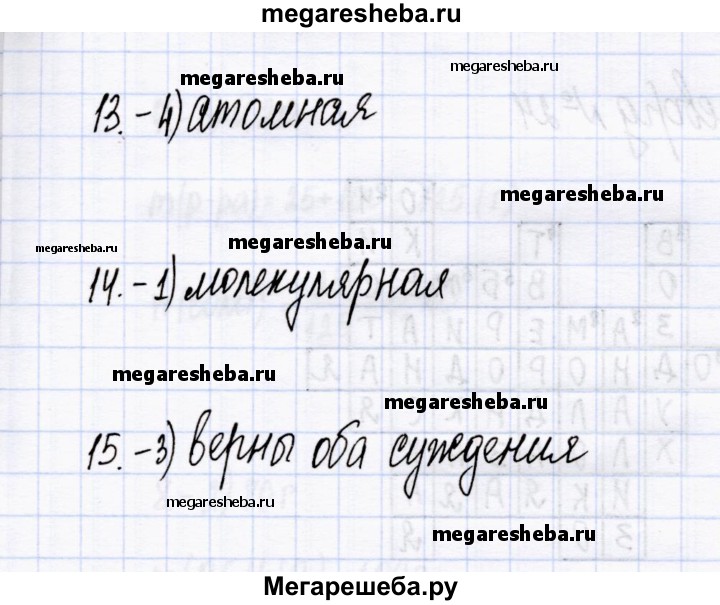 megaresheba.ru
megaresheba.ru
megaresheba.ru
13. - 4) атомная
megaresheba.ru
megaresheba.ru
megaresheba.ru
14. - 1) молекулярная
megaresheba.ru
megaresheba.ru
15. - 3) верны оба суждения
megaresheba.ru
megaresheba.ru
Мегарешеба.ру